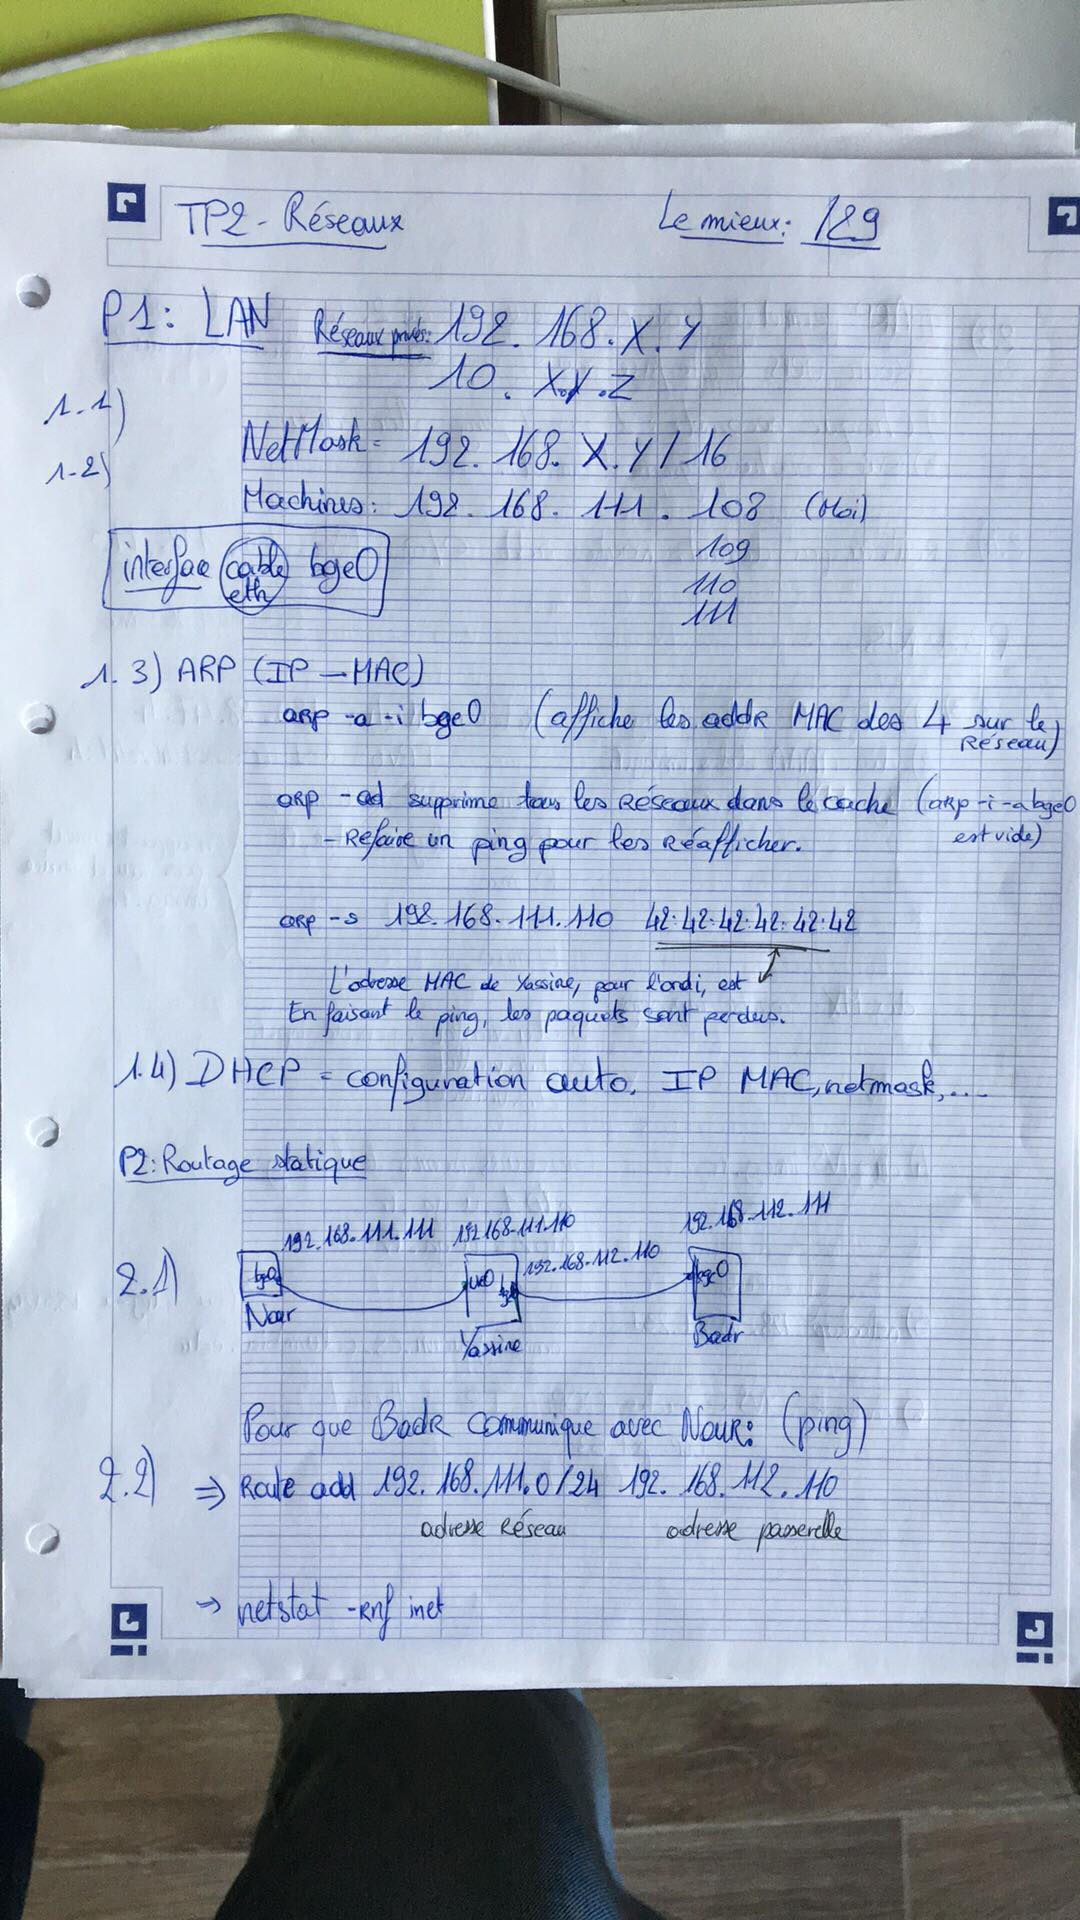 TP2 - Réseaux
Le mieux: /29
P1: LAN
Réseaux privés: 192.168.X.Y
10. X.Y.Z
1.1)
1-2)
NetMask = 192.168.X.Y/16
Machines: 192.168.111.108 (Moi)
109
110
111
interface cable bge0
eth
1.3) ARP (IP - MAC)
arp -a -i bge0 (affiche les addr MAC des 4 sur le
Réseau)
arp -ad supprime tous les Réseaux dans le cache (arp -i -a bge0
est vide)
- Refaire un ping pour les Réafficher.
arp -s 192.168.111.110 42:42:42:42:42:42
L'adresse MAC de Yassine, pour l'ordi, est
En faisant le ping, les paquets sont perdus.
1.4) DHCP = configuration auto. IP MAC, netmask, ...
P2: Routage statique
192.168.111.111 192.168.111.110 192.168.112.111
2.1)
bge0 192.168.112.110 bge0
Nour Yassine Badr
Pour que Badr communique avec Nour: (ping)
2.2) ⇒ Route add 192.168.111.0/24 192.168.112.110
adresse Réseau adresse passerelle
→ netstat -rnf inet